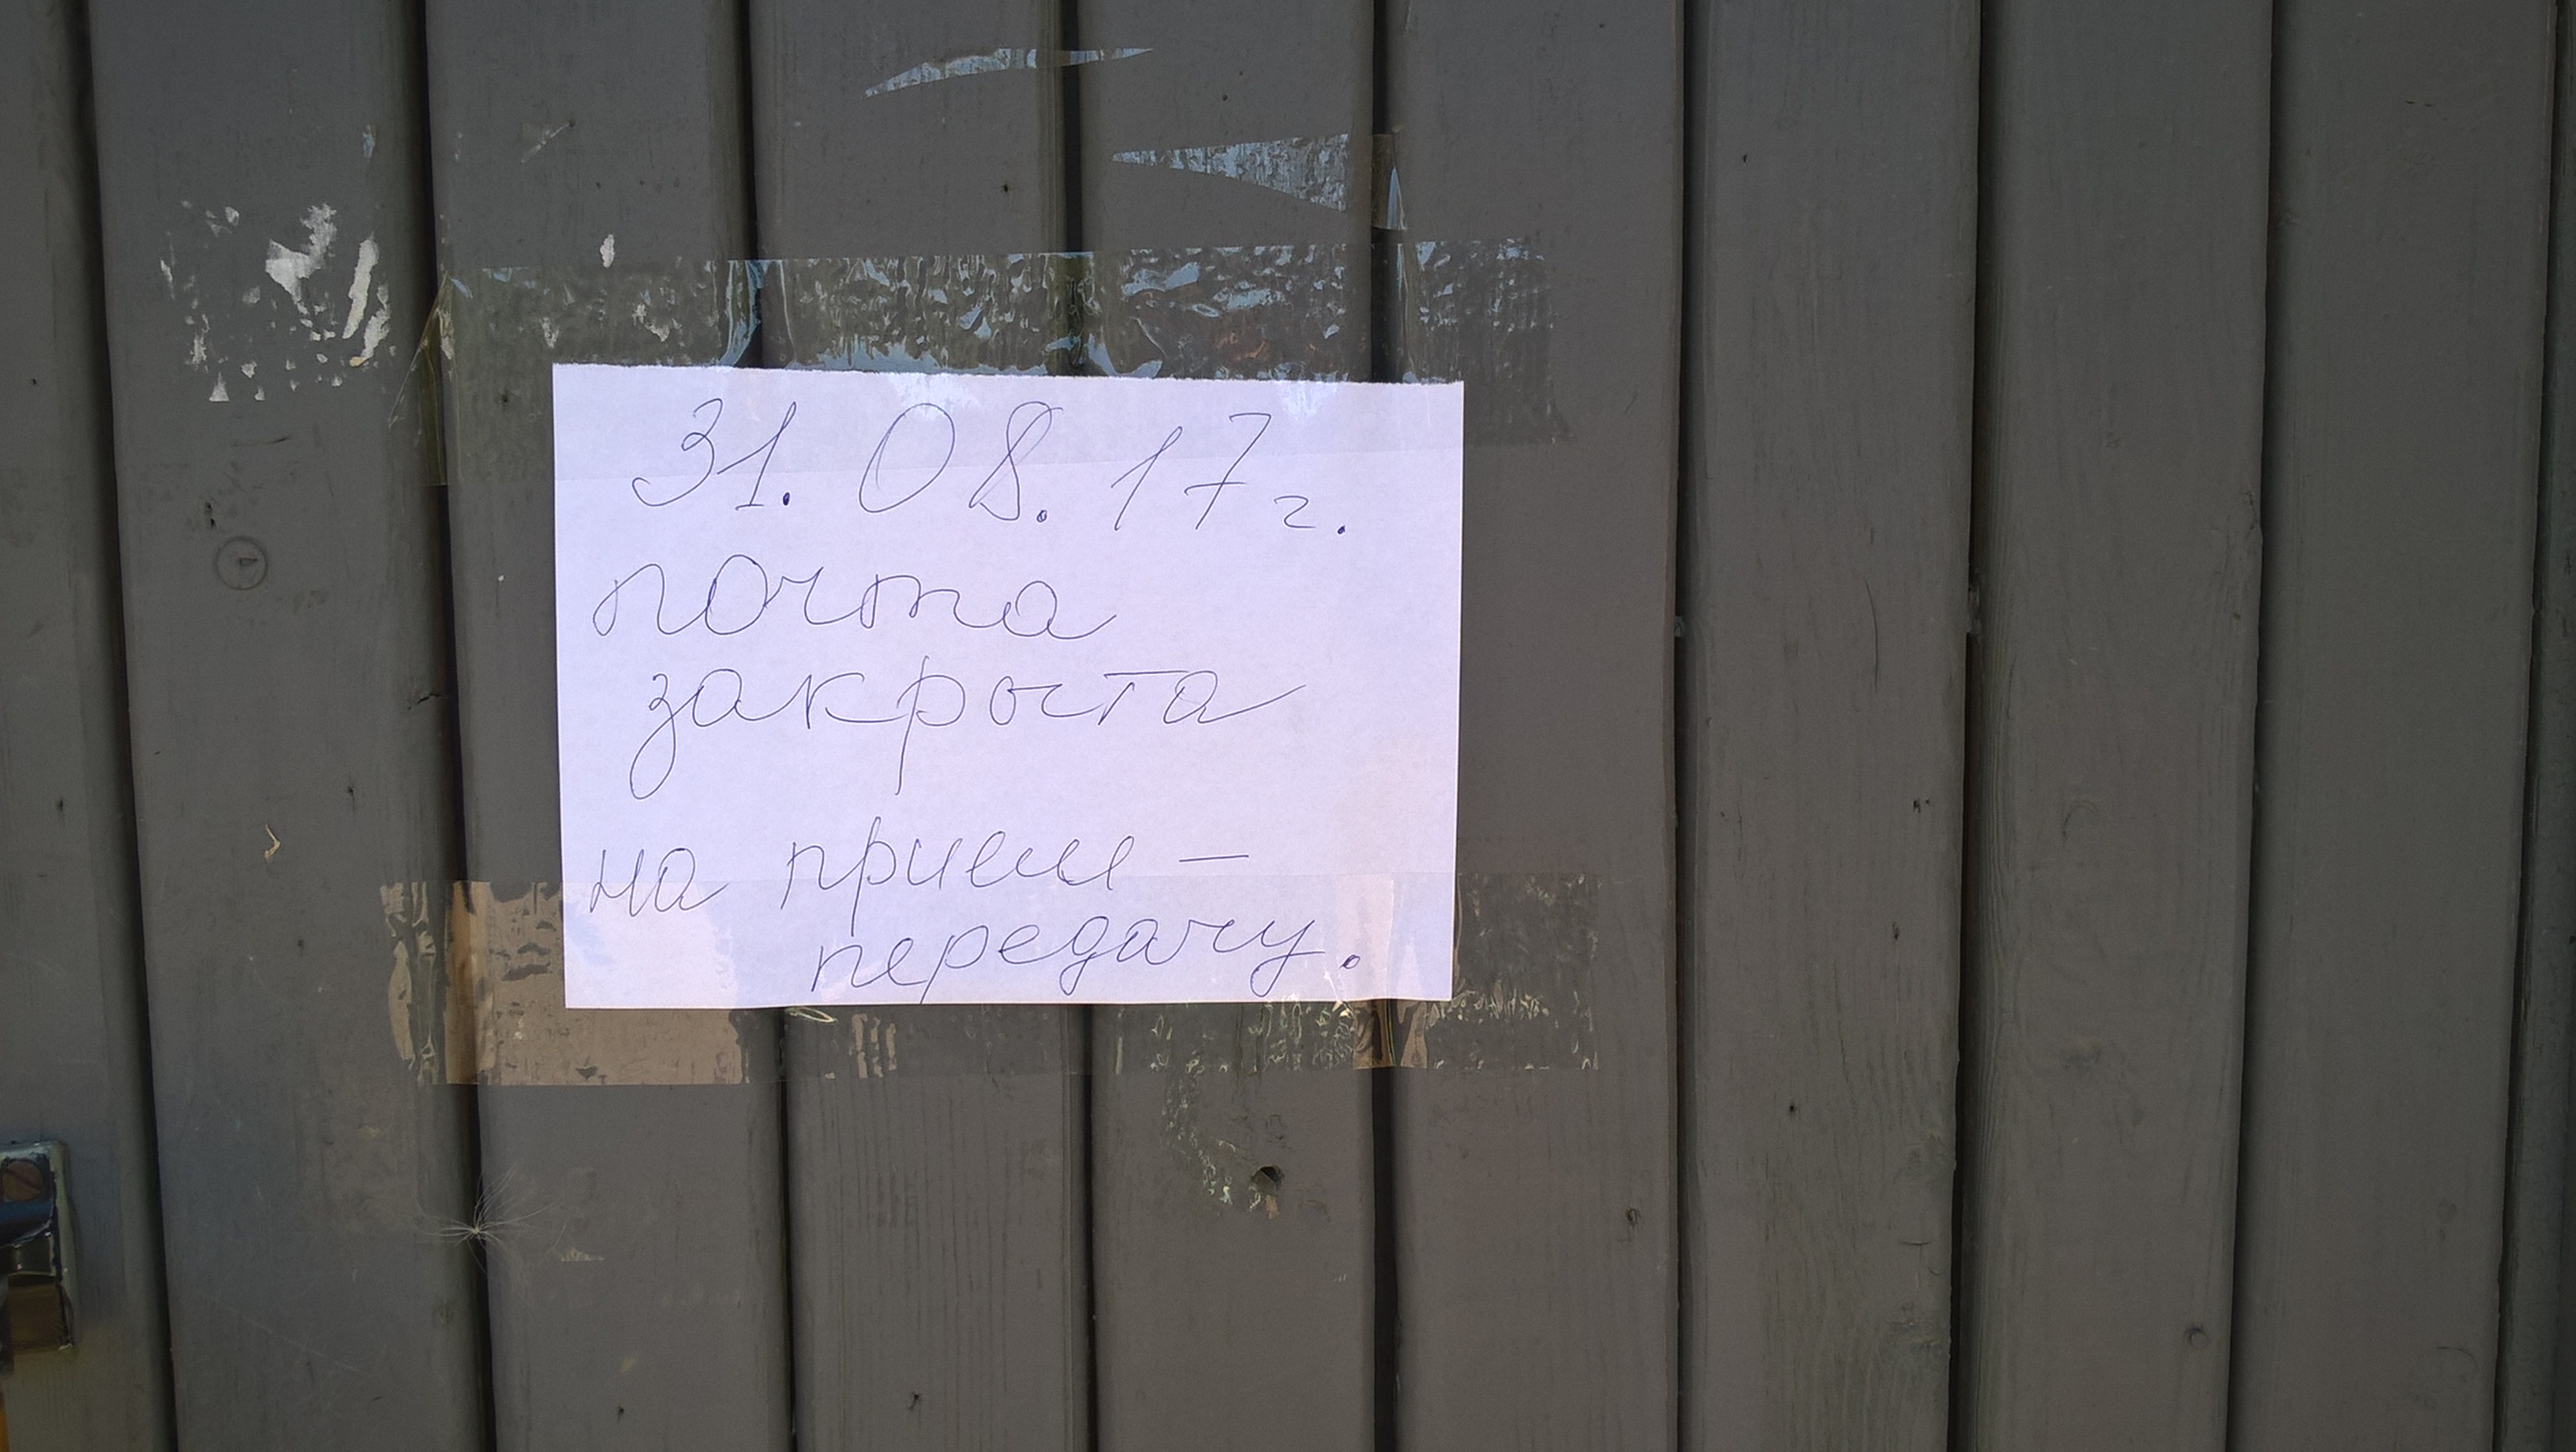 31.08.17г.
почта
закрыта
на прием -
передачу.